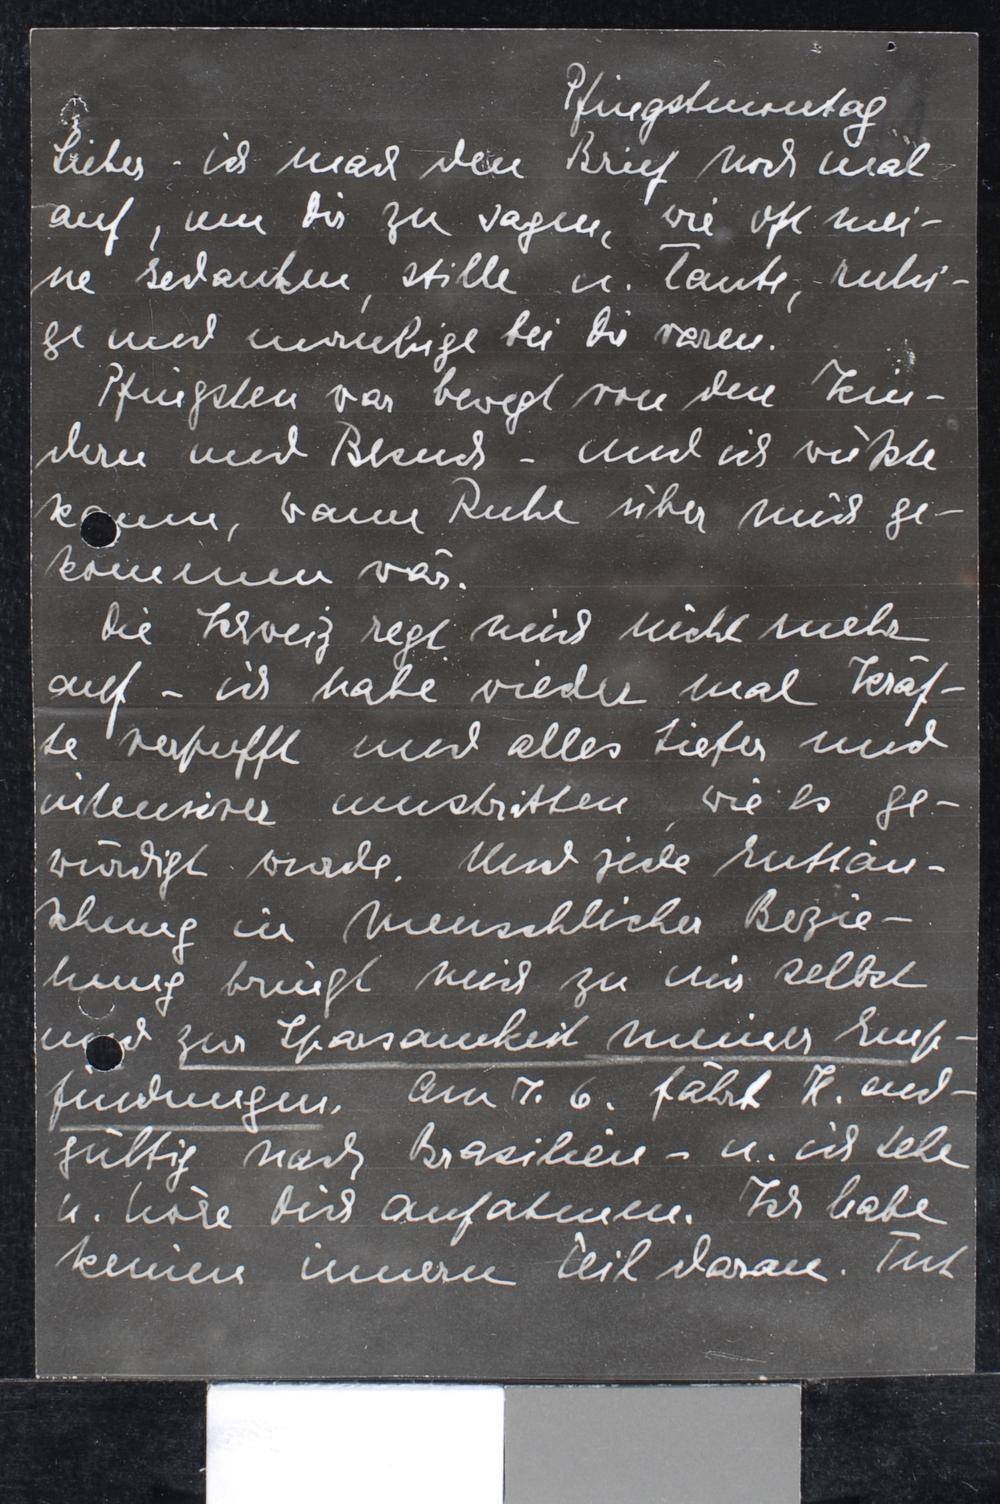 Pfingstmontag
Lieber - ich mach den Brief noch mal
auf, um Dir zu sagen, wie oft mei-
ne Gedanken, stille u. laute, ruhi-
ge und unruhige bei Dir waren.
Pfingsten war bewegt von den Kin-
dern und Besuch - und ich wüßte
kaum, wann Ruhe über mich ge-
kommen wär.
Die Schweiz regt mich nicht mehr
auf - ich habe wieder mal Kräf-
te verpufft und alles tiefer und
intensiver umstritten, wie es ge-
würdigt wurde. Und jede Enttäu-
schung in menschlicher Bezie-
hung bringt mich zu mir selbst
und zur Sparsamkeit meiner Emp-
findungen. Am 7. 6. fährt K. end-
gültig nach Brasilien - u. ich sehe
u. höre Dich aufatmen. Ich habe
keinen innern Teil daran. Tut